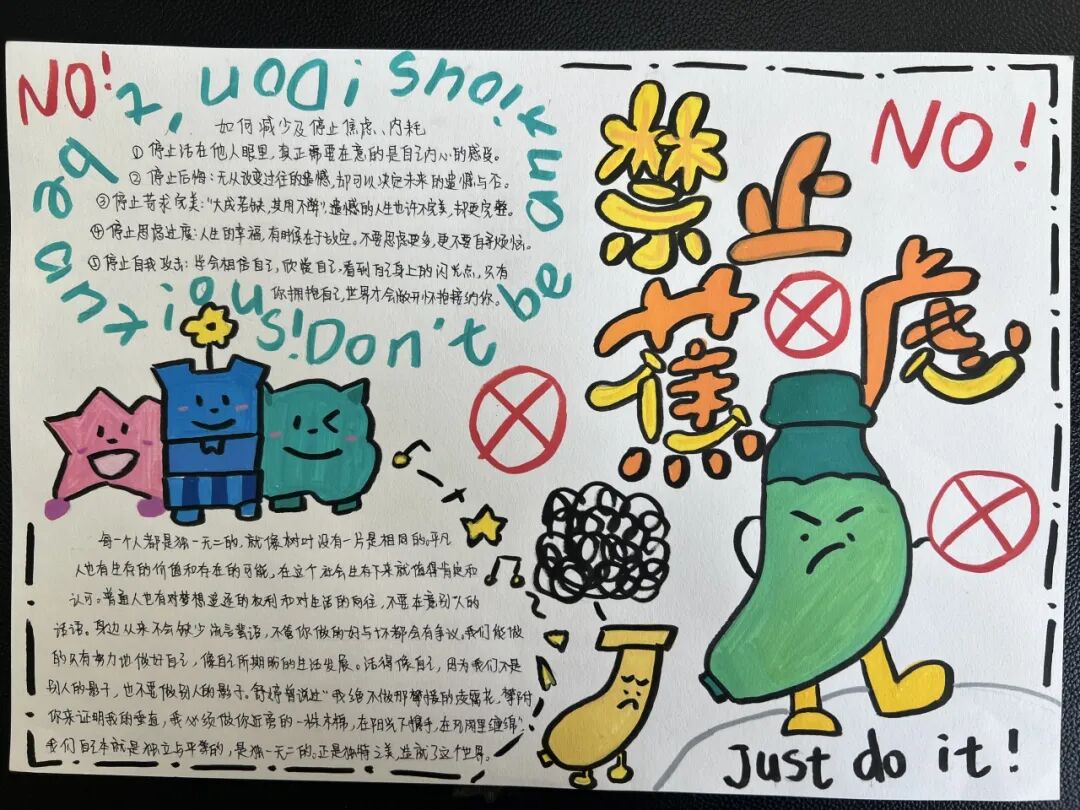 NO!
Don't be an anxious! Don't be an anxious!
如何减少及停止焦虑、内耗
① 停止活在他人眼里,真正需要在意的是自己内心的感受。
② 停止后悔:无从改变过往的遗憾,却可以决定未来的遗憾与否。
③ 停止苛求完美:"大成若缺,其用不弊",遗憾的人生也许不完美,却更完整。
④ 停止思虑过度:人生的幸福,有时候在于放空。不要思虑更多,更不要自寻烦恼。
⑤ 停止自我攻击:学会相信自己,欣赏自己,看到自己身上的闪光点,只有
你拥抱自己,世界才会敞开怀抱接纳你。
禁止
焦虑
NO!
每一个人都是独一无二的.就像树叶没有一片是相同的.平凡
人也有生存的价值和存在的可能,在这个社会生存下来就值得肯定和
认可。普通人也有对梦想追逐的权利和对生活的向往,不要在意别人的
话语。身边从来不会缺少流言蜚语,不管你做的好与坏都会有争议.我们能做
的只有努力地做好自己,像自己所期盼的生活发展。活得像自己,因为我们不是
别人的影子,也不要做别人的影子。舒婷曾说过"我绝不做那攀援的凌霄花,攀附
你来证明我的垂直,我必须做你近旁的一株木棉,在阳光下携手,在风雨里缠绵"
我们自己本就是独立与平等的,是独一无二的.正是独特之美,造就了这个世界.
Just do it!